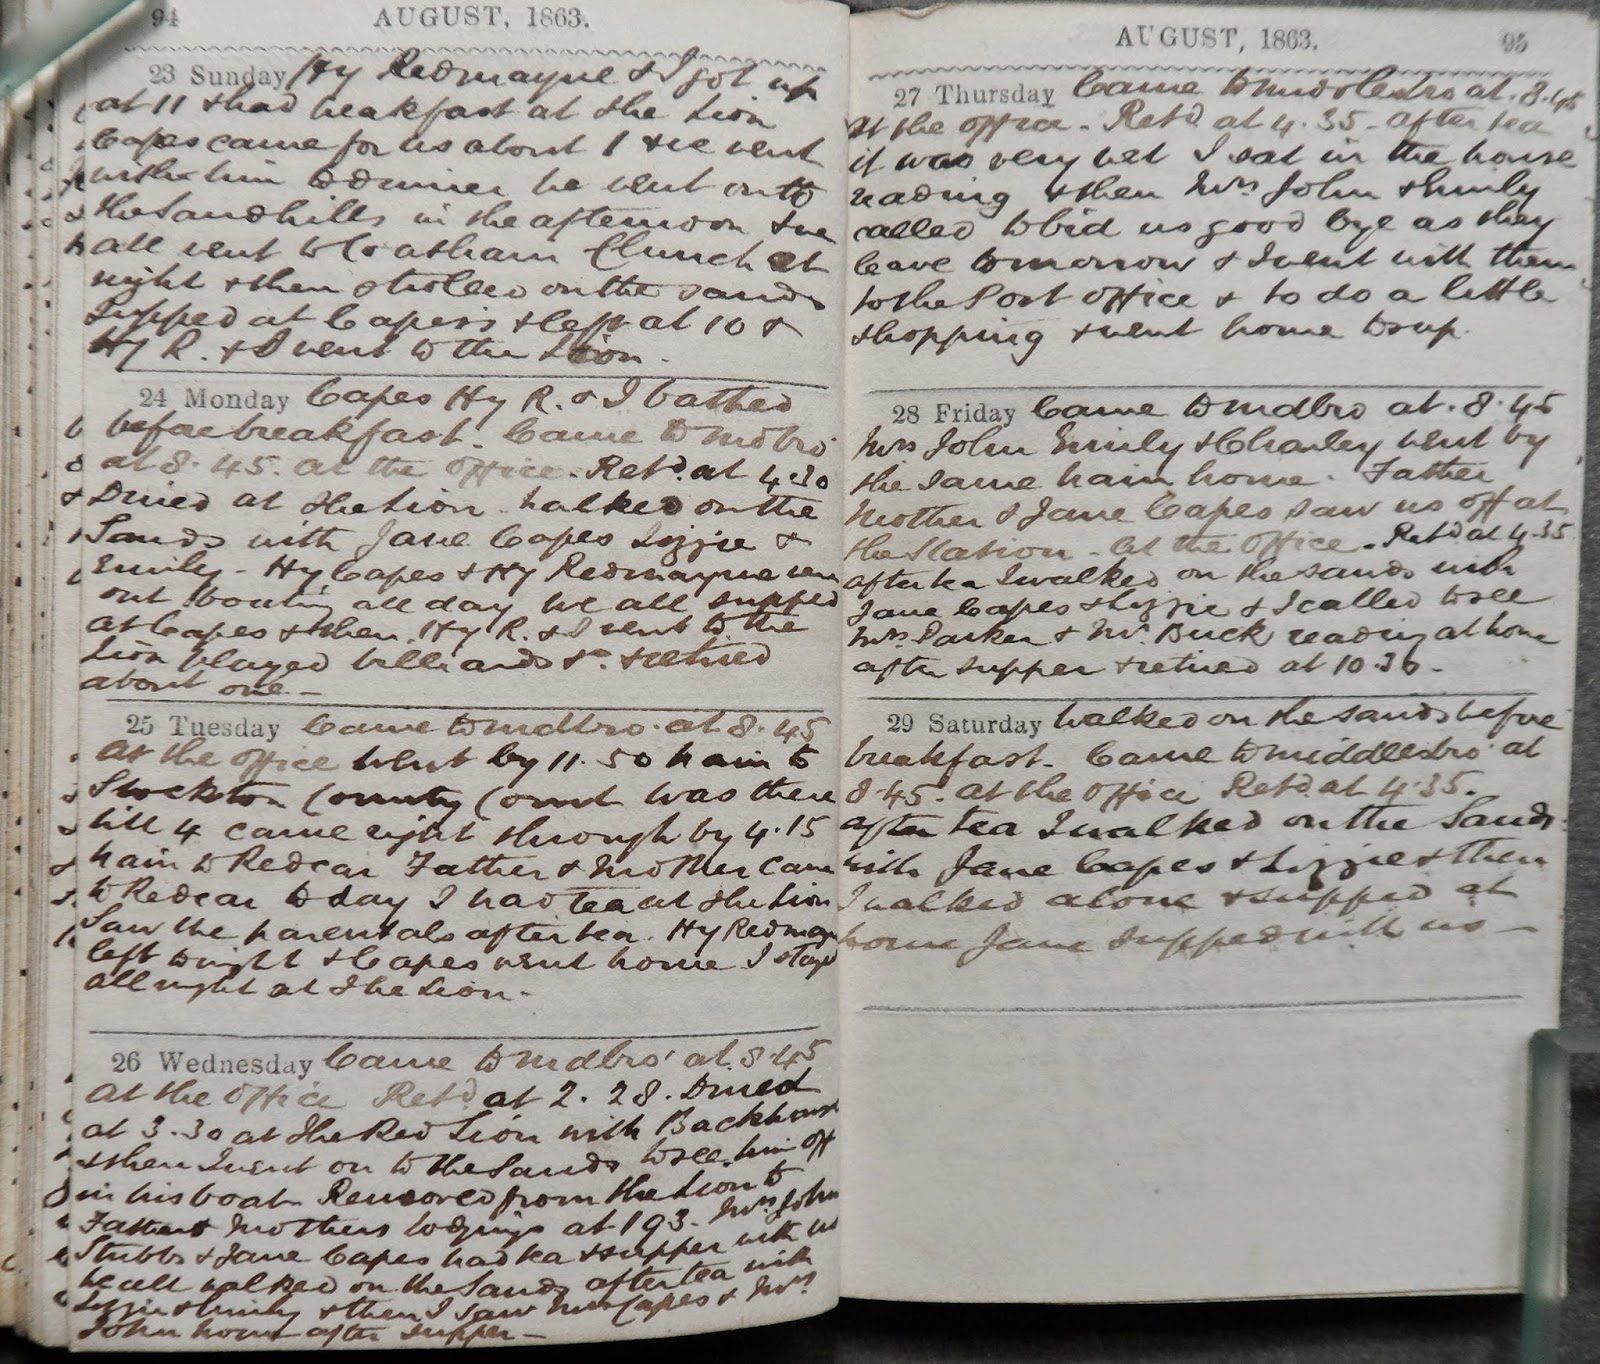 94
AUGUST, 1863.
23 Sunday Hy Redmayne & I got up
at 11 & had breakfast at the Lion
Capes came for us about 1 & we went
with him to dinner he went on to
the Sandhills in the afternoon & we
all went to Coatham Church at
night & then strolled on the sands
Supped at Capes's & left at 10 &
Hy R. & I went to the Lion.
24 Monday Capes Hy R. & I bathed
before breakfast. Came to Mdbro'
at 8.45. at the office. Retd. at 4.30
Dined at the Lion. Walked on the
Sands with Jane Capes Lizzie &
Emily - Hy Capes & Hy Redmayne were
out boating all day we all supped
at Capes & then Hy R. & I went to the
Lion played billiards &c. & retired
about one. -
25 Tuesday Came to Mdbro. at 8.45
at the office went by 11.50 train to
Stockton County Court was there
till 4 came right through by 4.15
train to Redcar Father & Mother came
to Redcar today I had tea at the Lion
Saw the parentals after tea. Hy Redmayne
left tonight & Capes went home I stayed
all night at the Lion -
26 Wednesday Came to Mdbro' at 8.45
at the office Retd. at 2.28. Dined
at 3.30 at the Red Lion with Backhouse
& then I went on to the Sands to see him off
in his boat. Removed from the Lion to
Father & Mothers lodgings at 193. Mrs. John
Stubbs & Jane Capes had tea & supper with us
We all walked on the Sands after tea with
Lizzie & Emily & then I saw Miss Capes & Mrs.
John home after supper -
AUGUST, 1863.
95
27 Thursday Came to Middlesbro at 8.45
At the office. Retd. at 4.35. after tea
it was very wet I sat in the house
reading & then Mrs John & Emily
called to bid us good bye as they
leave tomorrow & I went with them
to the Post office & to do a little
shopping & went home to sup.
28 Friday Came to Mdbro at 8.45
Mrs John Emily & Charley went by
the same train home. Father
Mother & Jane Capes saw us off at
the Station - at the office. Retd. at 4.35
after tea I walked on the sands with
Jane Capes & Lizzie & I called to see
Mrs. Parker & Mr. Buck reading at home
after supper & retired at 10.30.
29 Saturday Walked on the sands before
breakfast. Came to Middlesbro' at
8.45. at the office Retd. at 4.35.
after tea I walked on the Sands
with Jane Capes & Lizzie & then
I walked alone & supped at
home Jane supped with us -